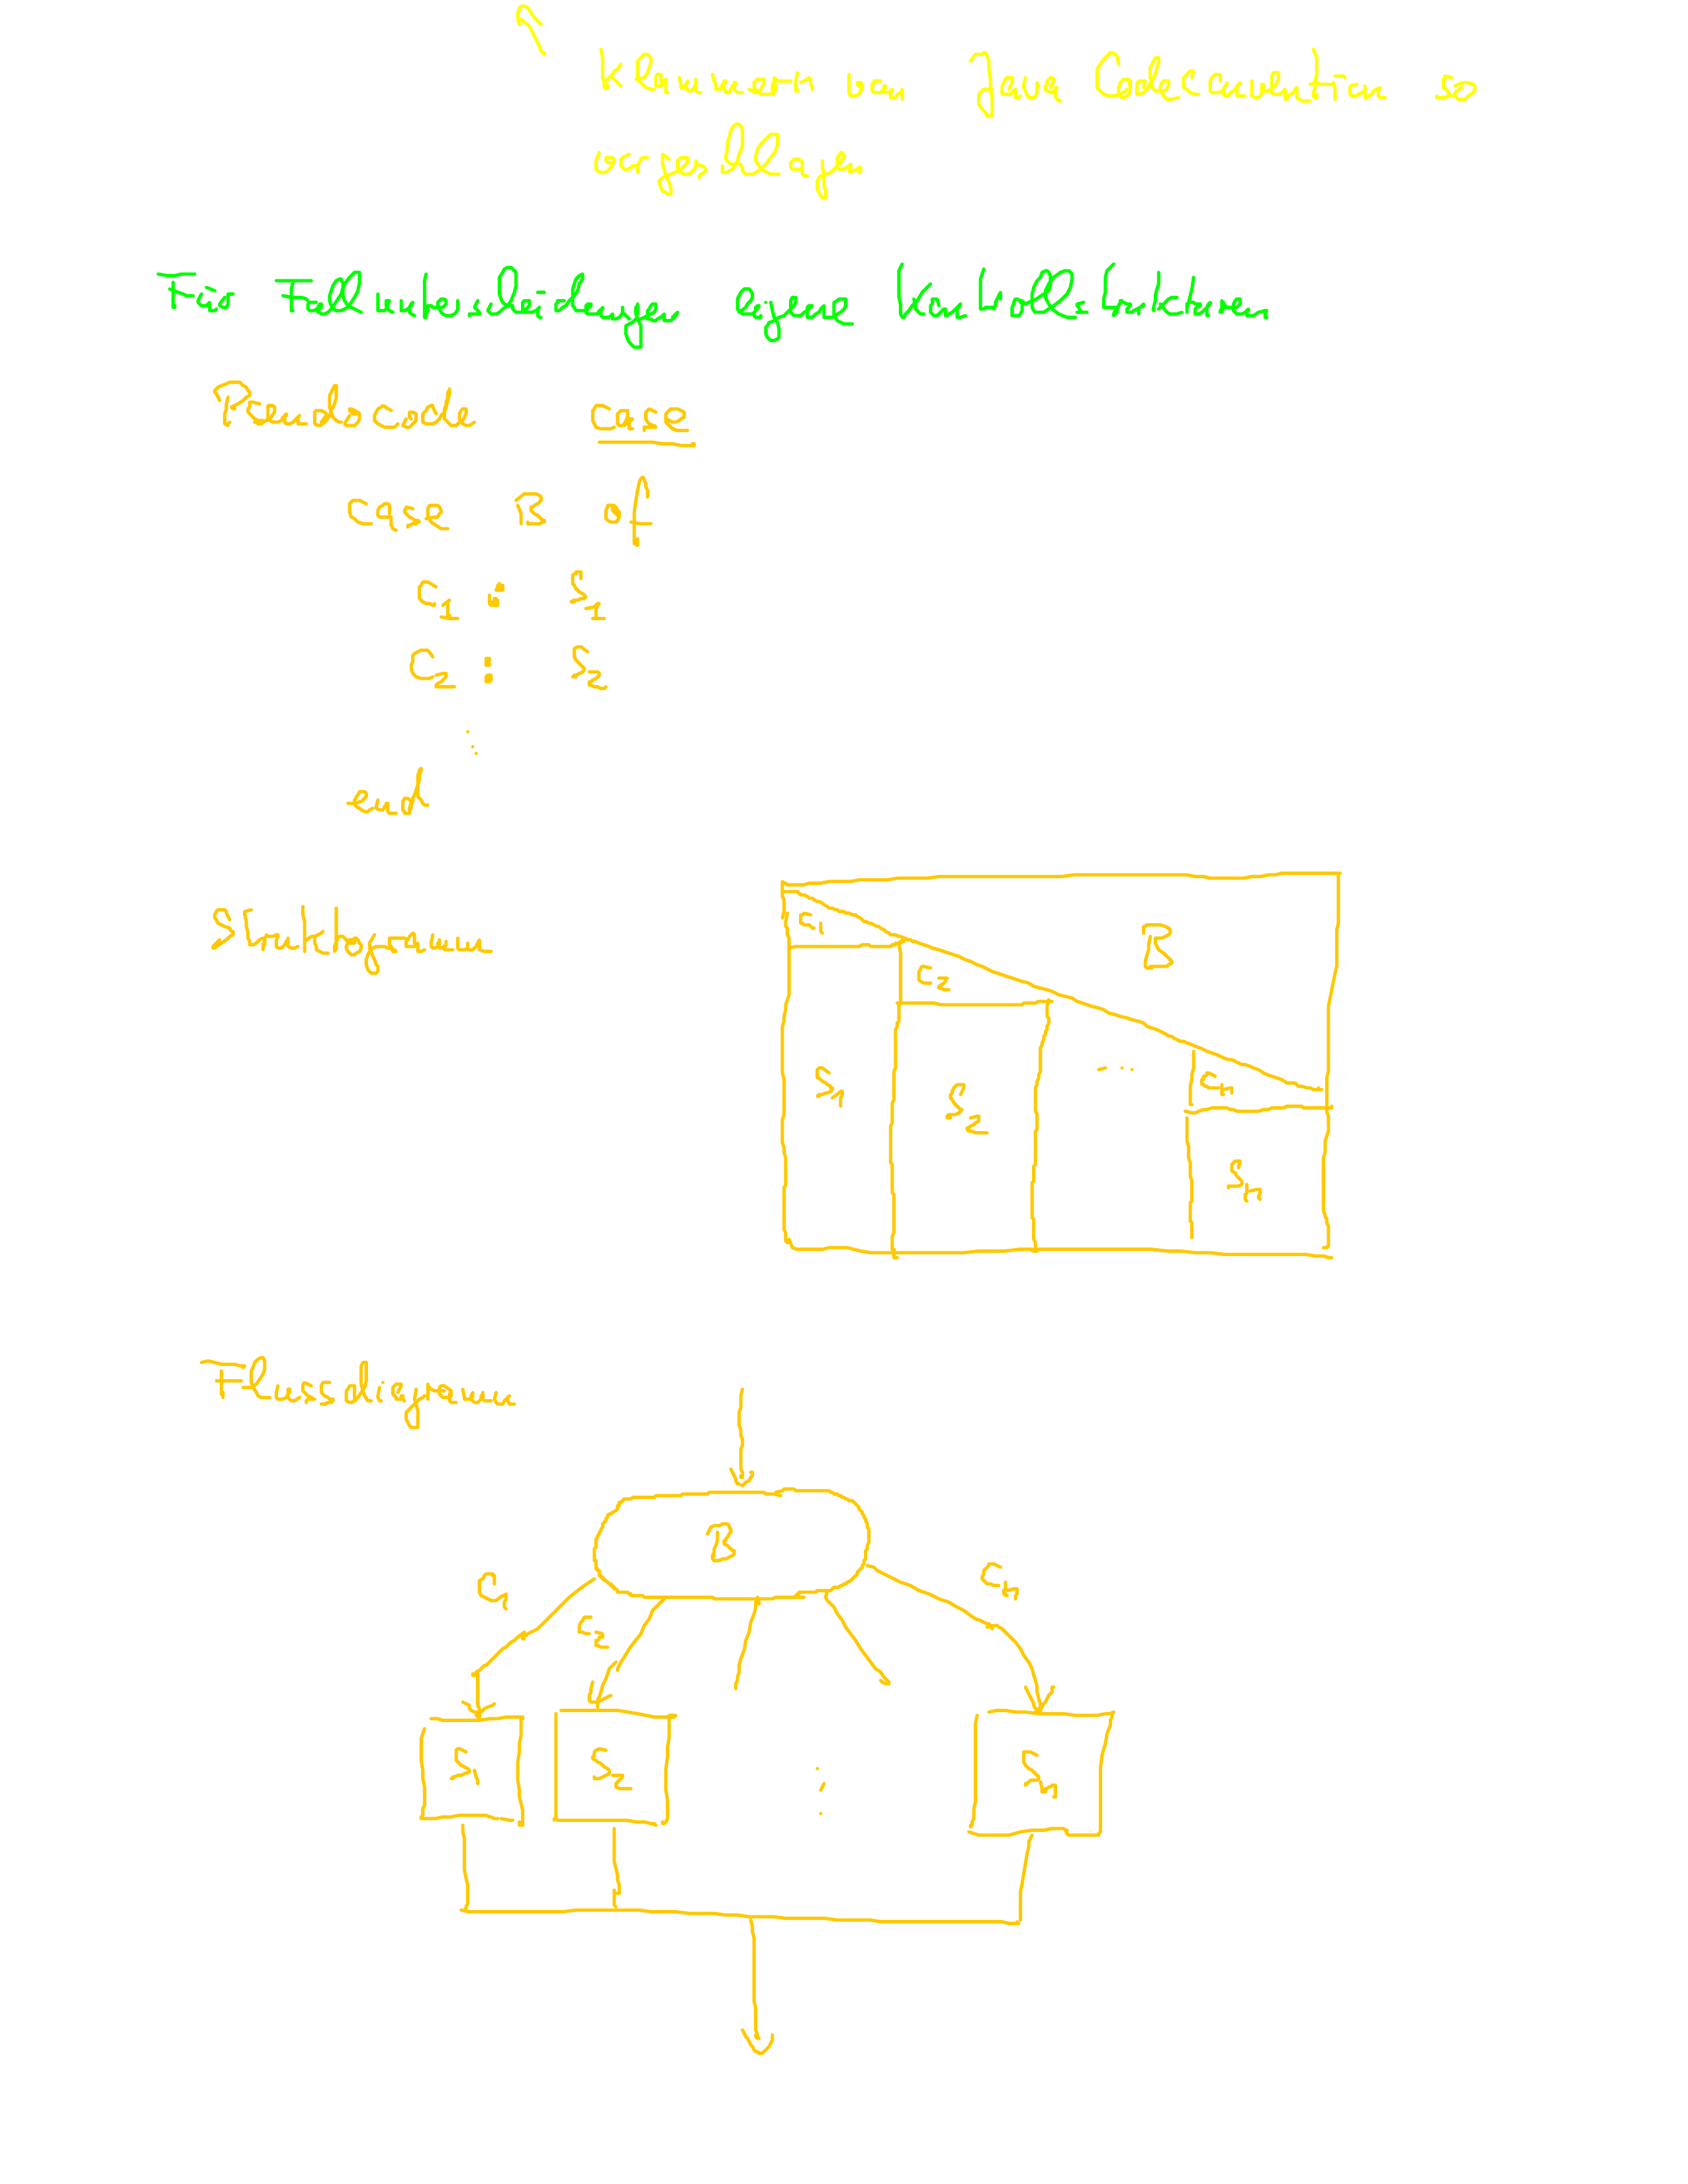 Klammern von Java Codeconvention so
vorgeschlagen
Für Fallunterscheidungen eigene Kontrollstruktur
Pseudocode case
case B of
C1 : S1
C2 : S2
...
end
Struktogramm
C1
B
C2
...
Cn
S1
S2
Sn
Flussdiagramm
B
C1
Cn
C2
S1
S2
...
Sn